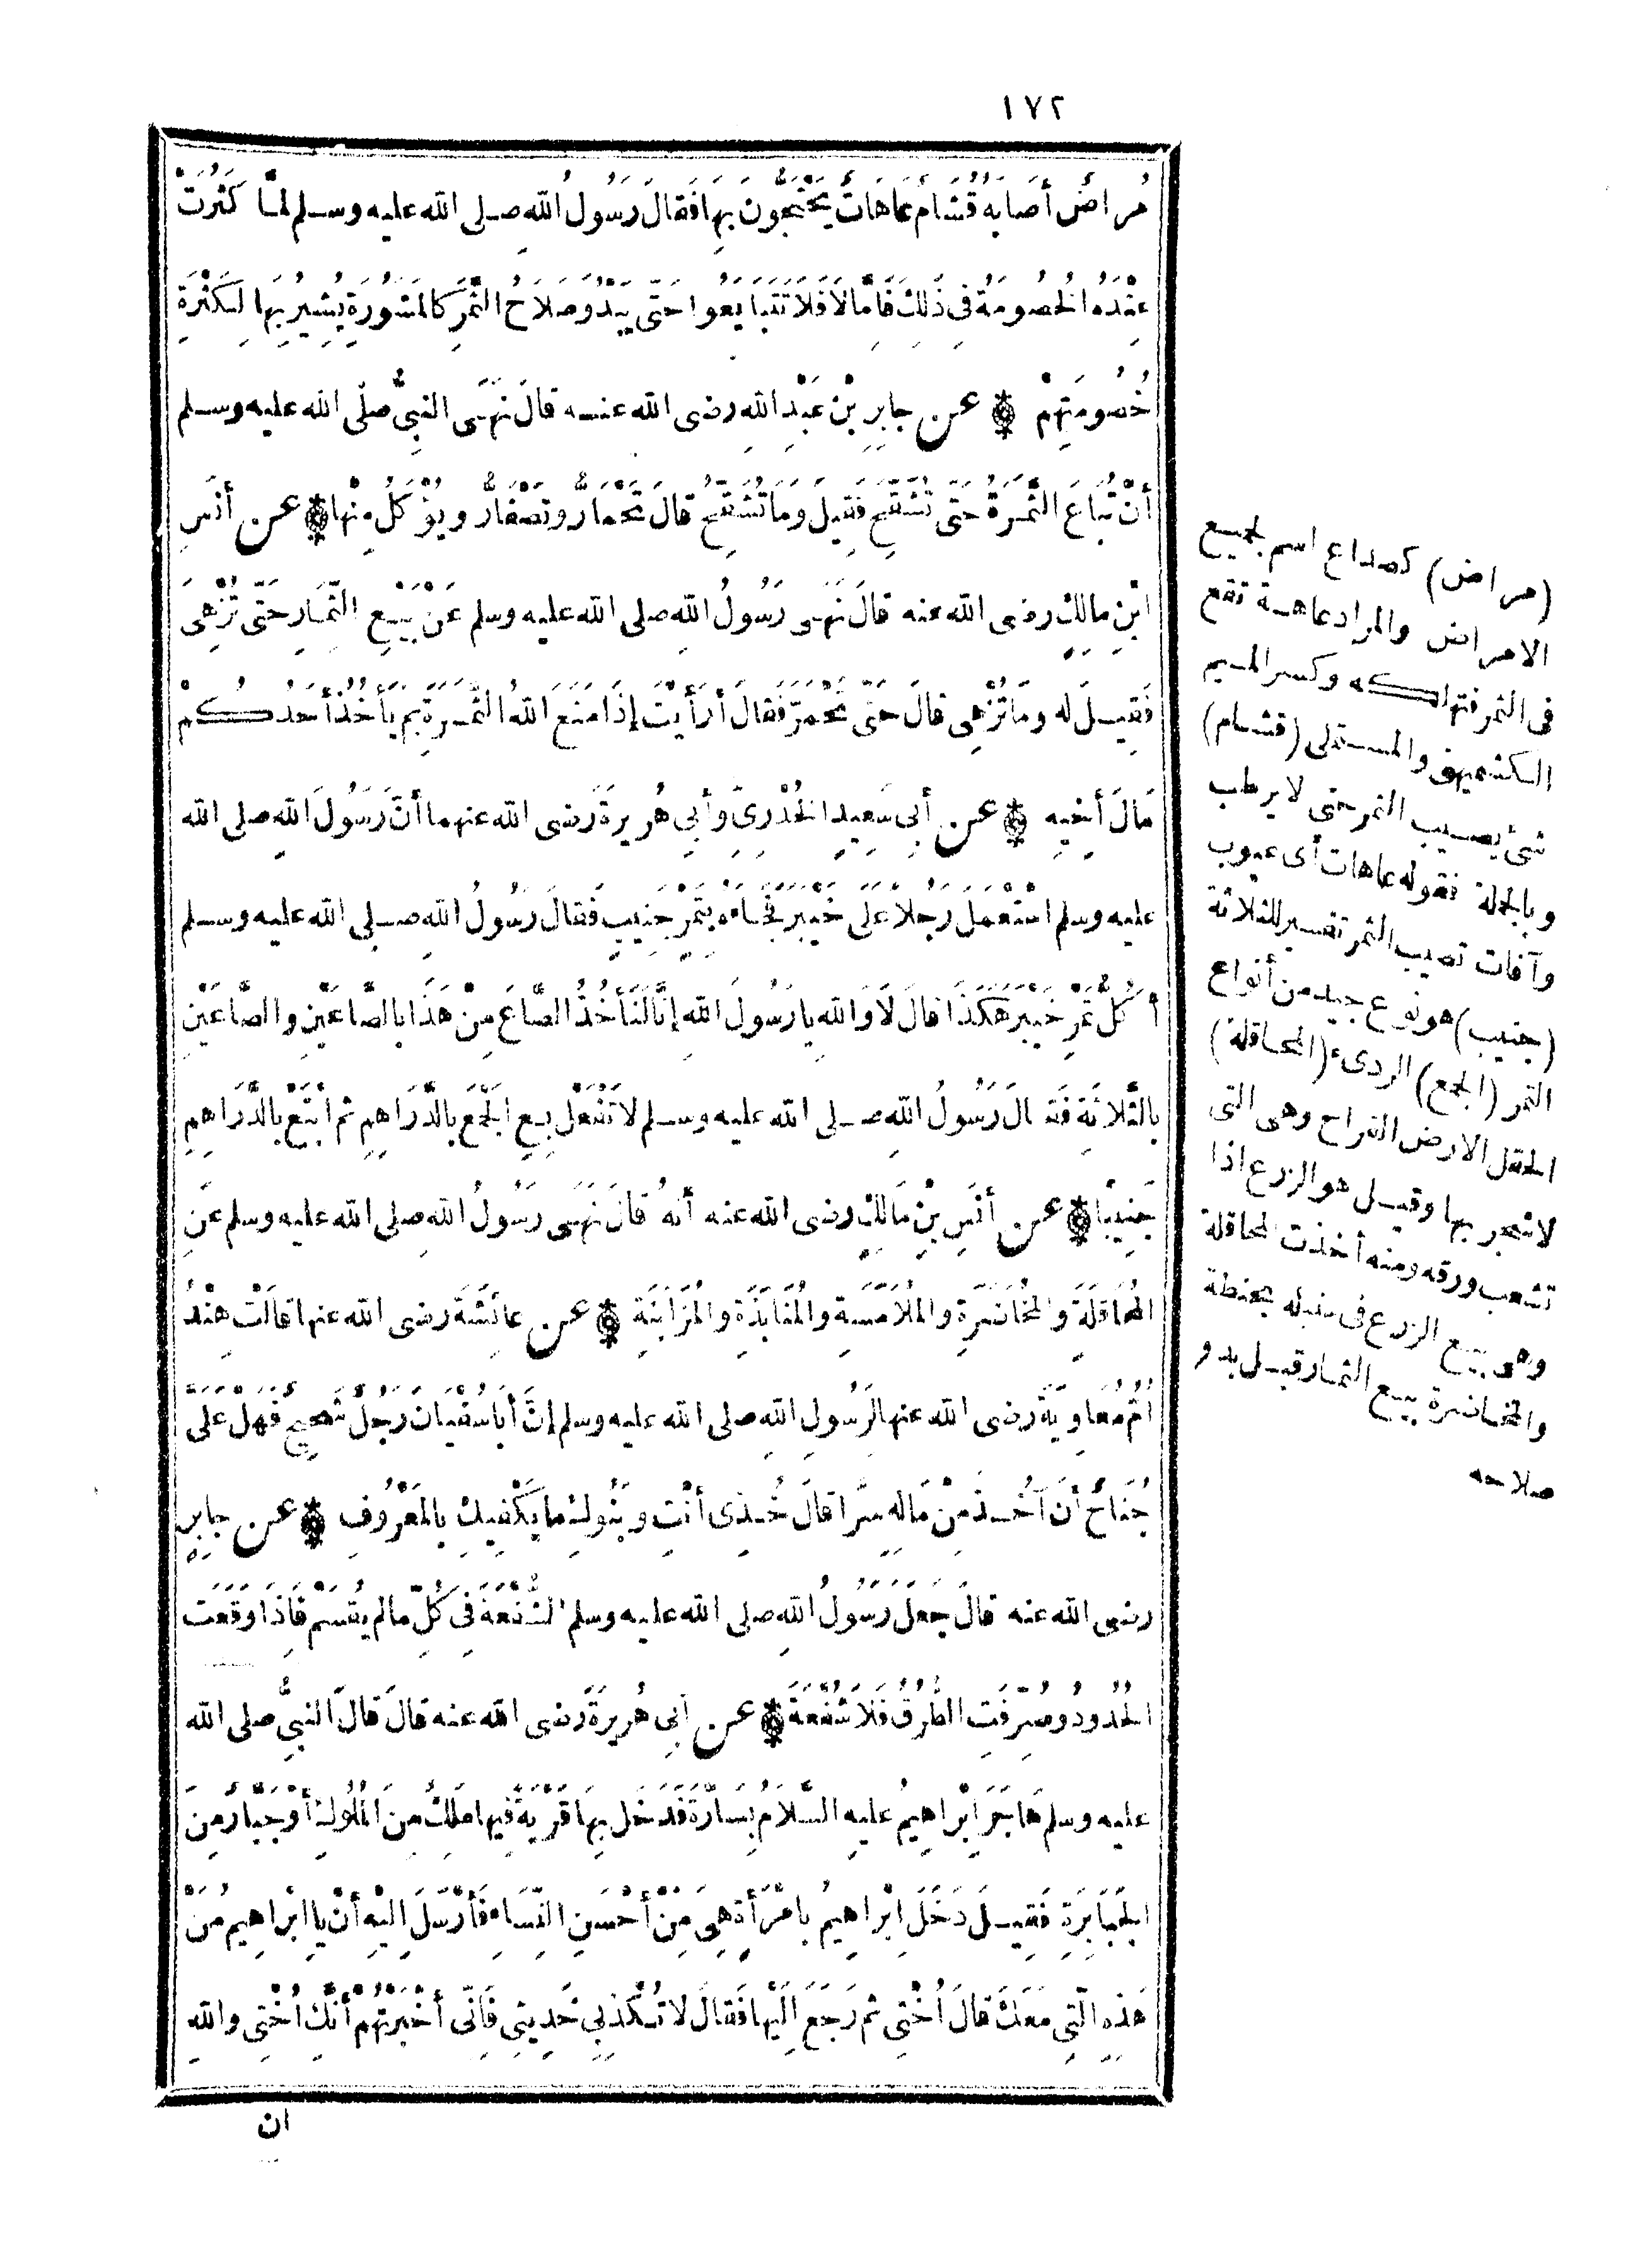 ١٧٢
مُرَاضٌ أَصَابَهُ قُشَامٌ عَاهَاتٌ يَحْتَجُّونَ بِهَا فَقَالَ رَسُولُ اللهِ صلى الله عليه وسلم لمَّا كَثُرَتْ
عِنْدَهُ الخُصُومَةُ فِي ذَلِكَ فَإِمَّا لَا فَلَا تَتَبَايَعُوا حَتَّى يَبْدُوَ صَلَاحُ الثَّمَرِ كَالمَشُورَةِ يُشِيرُ بِهَا لِكَثْرَةِ
خُصُومَتِهِمْ ۞ عن جابِرِ بْنِ عَبْدِ اللهِ رضى الله عنه قالَ نَهَى النبىُّ صلَى الله عليه وسلم
أَنْ تُبَاعَ الثَّمَرَةُ حَتَّى تُشَقِّحَ فَقِيلَ وَمَا تُشَقِّحُ قالَ تَحْمَارُّ وتَصْفَارُّ ويُؤْكَلُ مِنْها ۞ عن أنَسِ
ابْنِ مالِكٍ رضى الله عنه قالَ نَهَى رَسُولُ اللهِ صلى الله عليه وسلم عَنْ بَيْعِ الثِّمَارِ حَتَّى تُزْهِىَ
فَقِيلَ له وَمَا تُزْهِى قالَ حَتَّى تَحْمَرَّ فَقالَ أَرَأَيْتَ إِذَا مَنَعَ اللهُ الثَّمَرَةَ بِمَ يَأْخُذُ أَحَدُكُمْ
مَالَ أَخِيهِ ۞ عن أبِى سَعِيدٍ الخُدْرِىِّ وأَبِى هُرَيرَةَ رضى الله عنهما أنَّ رَسُولَ اللهِ صلى الله
عليه وسلم اسْتَعْمَلَ رَجُلًا عَلَى خَيْبَرَ فَجَاءَهُ بِتَمْرٍ جَنِيبٍ فَقالَ رَسُولُ اللهِ صلى الله عليه وسلم
أَكُلُّ تَمْرِ خَيْبَرَ هَكَذَا قالَ لَا وَاللهِ يا رَسُولَ اللهِ إنَّا لَنَأْخُذُ الصَّاعَ مِنْ هَذَا بِالصَّاعَيْنِ والصَّاعَيْنِ
بالثَّلَاثَةِ فَقالَ رَسُولُ اللهِ صلى الله عليه وسلم لا تَفْعَلْ بِعِ الجَمْعَ بالدَّرَاهِمِ ثم ابْتَعْ بالدَّرَاهِمِ
جَنِيبًا ۞ عن أَنَسِ بْنِ مَالِكٍ رضى الله عنه أنه قالَ نَهَى رَسُولُ اللهِ صلى الله عليه وسلم عَنِ
المُحَاقَلَةِ والمُخَاضَرَةِ والمُلَامَسَةِ والمُنَابَذَةِ والمُزَابَنَةِ ۞ عن عائِشَةَ رضى الله عنها قالَتْ هِنْدُ
أُمُّ مُعَاوِيَةَ رضى الله عنها لِرَسُولِ اللهِ صلى الله عليه وسلم إنَّ أَبَا سُفْيَانَ رَجُلٌ شَحِيحٌ فَهَلْ عَلَىَّ
جُنَاحٌ أَنْ آخُذَ مِنْ مَالِهِ سِرًّا قالَ خُذِى أَنْتِ وبَنُوكِ ما يَكْفِيكِ بِالمَعْرُوفِ ۞ عن جابِرٍ
رضى الله عنه قالَ جَعَلَ رَسُولُ اللهِ صلى الله عليه وسلم الشُّفْعَةَ فى كُلِّ مالم يُقْسَمْ فَإذَا وَقَعَتِ
الحُدُودُ وصُرِّفَتِ الطُّرُقُ فَلَا شُفْعَةَ ۞ عن أَبِى هُرَيرَةَ رضى الله عنه قالَ قالَ النبىُّ صلى الله
عليه وسلم هَاجَرَ إبْراهِيمُ عليهِ السَّلَامُ بِسَارَّةَ فَدَخَلَ بِهَا قَرْيَةً فِيها مَلِكٌ مِنَ المُلُوكِ أَوْ جَبَّارٌ مِنَ
الجَبَابِرَةِ فَقِيلَ دَخَلَ إبْراهِيمُ بامْرَأَةٍ هِىَ مِنْ أَحْسَنِ النِّسَاءِ فَأَرْسَلَ إِلَيْهِ أَنْ يا إبْراهِيمُ مَنْ
هَذِهِ الَّتِى مَعَكَ قالَ أُخْتِى ثم رَجَعَ إلَيْها فَقالَ لا تُكَذِّبِى حَدِيثِى فَإنِّى أَخْبَرْتُهُمْ أَنَّكِ أُخْتِى واللهِ
ان
(مراض) كصداع اسم لجميع
الامراض والمراد عاهة تقع
فى الثمر فتهلكه وكسر الميم
الكشميهنى والمستملى (قشام)
شئ يصيب الثمر حتى لا يرطب
وبالجملة فقوله عاهات أى عيوب
وآفات تصيب الثمر تفسير للثلاثة
(جنيب) هو نوع جيد من أنواع
التمر (الجمع) الردىء (المحاقلة)
الحقل الارض القراح وهى التى
لا شجر بها وقيل هو الزرع اذا
تشعب ورقه ومنه أخذت المحاقلة
وهى بيع الزرع فى سنبله بحنطة
والمخاضرة بيع الثمار قبل بدو
صلاحه